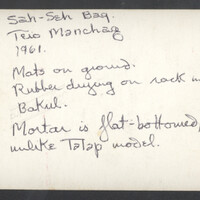 Sah-Seh Bag.
Teio Manchag
1961.
Mats on ground.
Rubber drying on rack in
Bakul.
Mortar is flat-bottomed,
unlike Talap model.